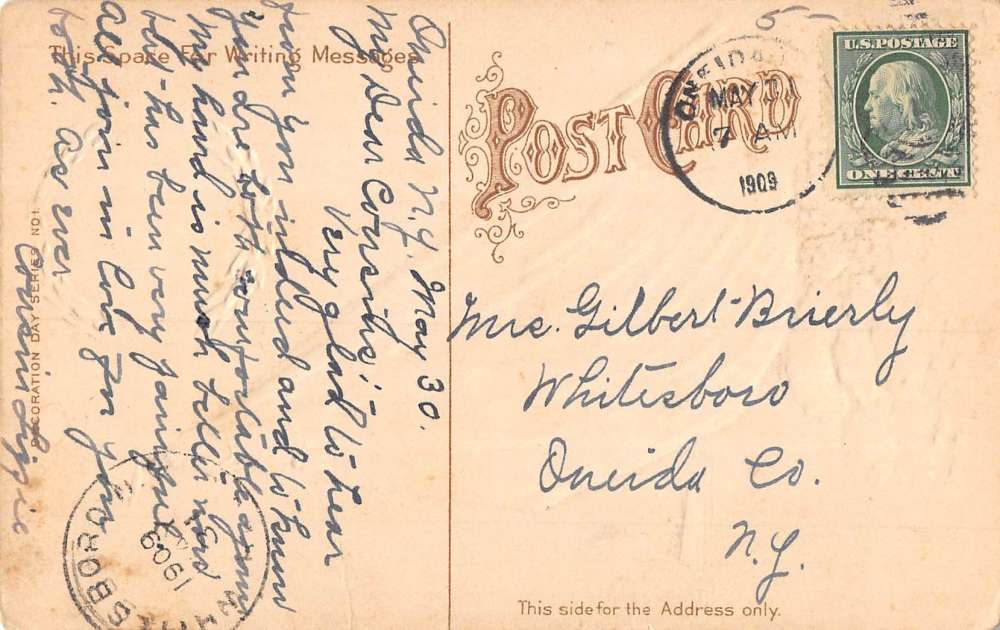 This Space For Writing Messages
Oneida N.Y. May 30.
My Dear Cousins:
Very glad to hear
from you indeed and to know
you are both comfortable again
My hand is much better now
but has been very painful.
All join in love for you
both. As ever
Cousin
DECORATION DAY SERIES NO 1
POST CARD
ONEIDA
MAY
7 AM
1909
U.S. POSTAGE
ONE CENT
Mrs. Gilbert Brierly
Whitesboro
Oneida Co.
N.Y.
SBORO
1909
This side for the Address only.